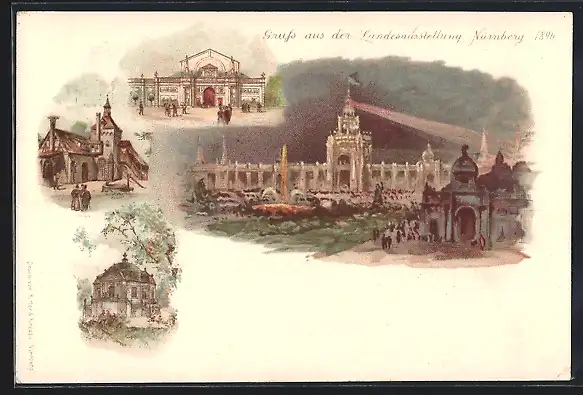 Gruß aus der Landesausstellung Nürnberg 1896